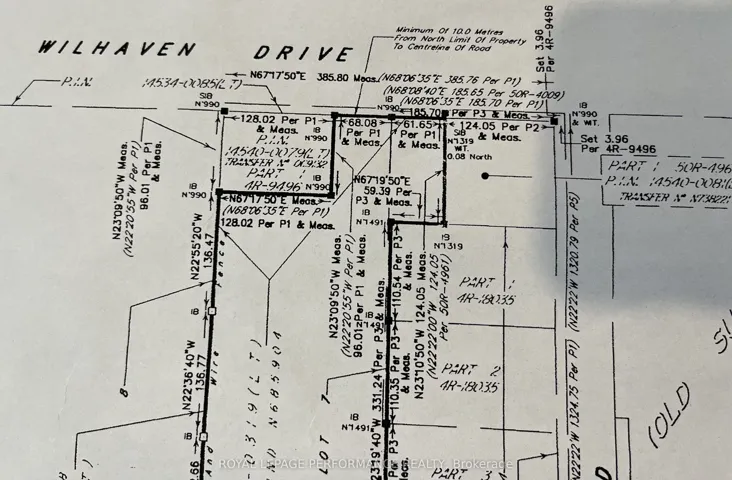 WILHAVEN DRIVE
Minimum Of 10.0 Metres
From North Limit Of Property
To Centreline Of Road
Set 3.96
Per 4R-9496
N67°17'50"E 385.80 Meas.
(N68°06'35"E 385.76 Per P1)
(N68°08'40"E 185.65 Per 50R-4009)
(N68°06'35"E 185.70 Per P1)
P.I.N. 14534-0085(LT)
SIB
N°990
128.02 Per P1
& Meas.
IB
N°990
68.08
Per P1
& Meas.
61.65
Per P1
& Meas.
185.70 Per P3 & Meas.
124.05 Per P2
& Meas.
IB
N°990
& WIT.
Set 3.96
Per 4R-9496
SIB
N°1319
WIT.
0.08 North
P.I.N.
14540-0079(LT)
PART 1
4R-9496
IB
N°990
IB
N°990
N67°19'50"E
59.39 Per
P3 & Meas.
PART 1 50R-496
TRANSFER N° N73822
N67°17'50"E Meas.
(N68°06'35"E Per P1)
128.02 Per P1 & Meas.
N23°09'50"W Meas.
(N22°20'55"W Per P1)
96.01 Per P1
N22°55'20"W
136.47
Fence
IB
N°1491
IB
N°1319
N23°09'50"W Meas.
(N22°20'55"W Per P1)
96.012 Per P1 & Meas.
110.54 Per P3
& Meas.
N23°10'50"W 124.05 Meas.
(N22°22'00"W 124.05
Per 50R-4961)
PART 1
4R-18035
(N22°22'W 1320.79 Per P5)
IB
IB
N°1491
N22°36'40"W
136.77
Wire
8
331.24 Per P3 & Meas.
110.35 Per P3
& Meas.
PART 2
4R-18035
N22°22'W 1324.75 Per P1)
LOT 7
N685904
IB
N°1491
IB
And
PART 3
(OLD
ROYAL LEPAGE PERFORMANCE REALTY, Brokerage